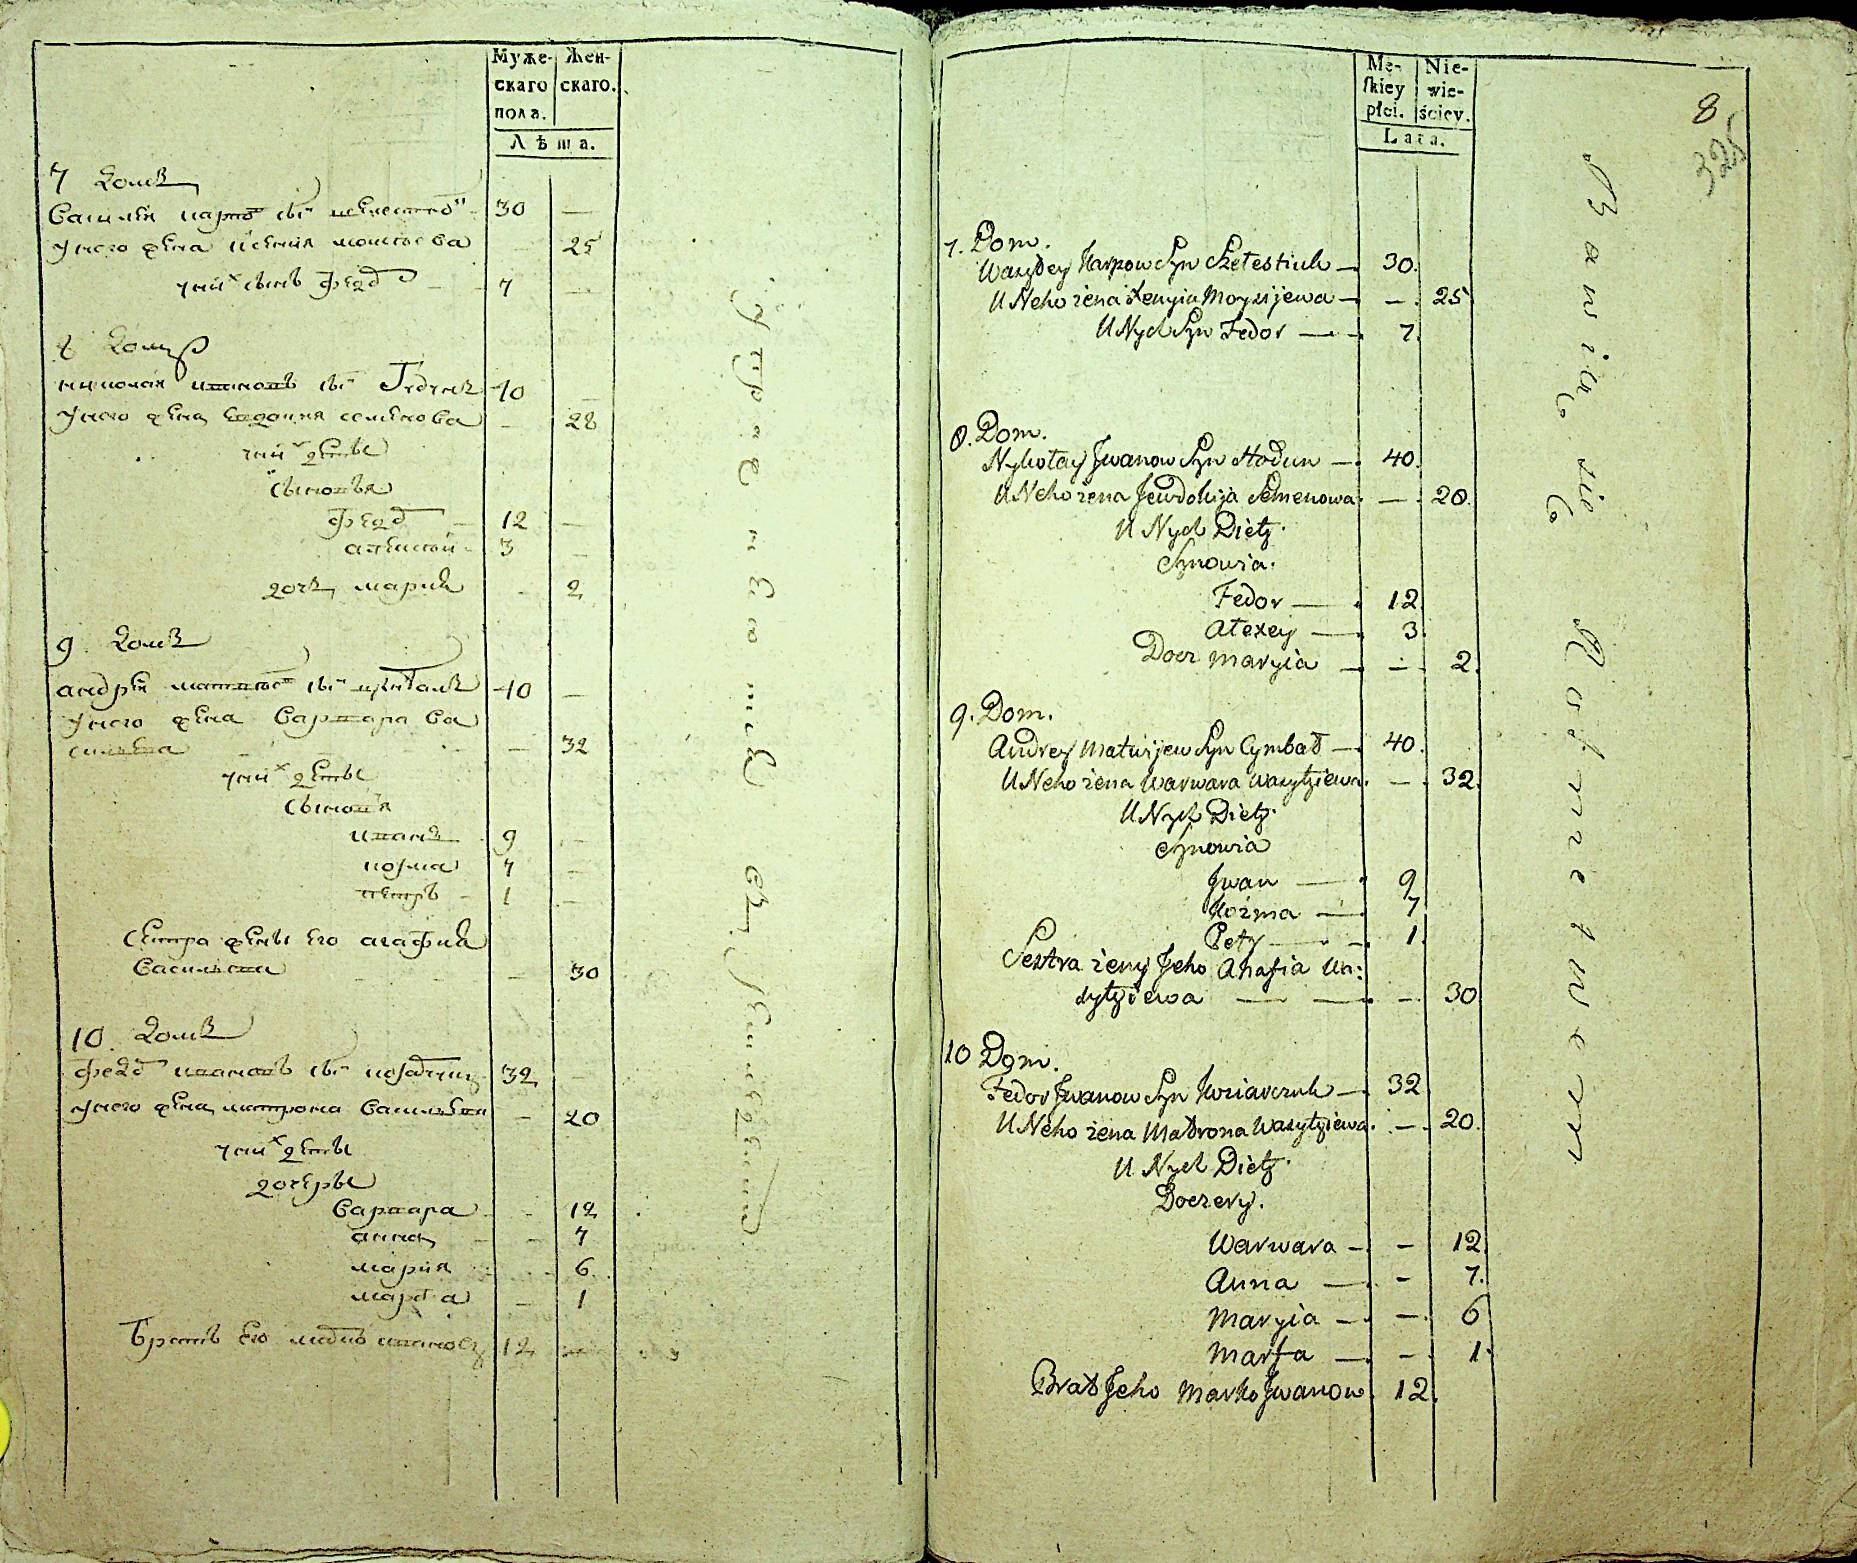 Муже-
скаго
пола.
Жен-
скаго.
Лѣта.
7 домъ
Василей карпов сын 30 —
у него жена ксения моисеева — 25
у них сынъ федор — 7 —
8 домъ
николай ивановъ сын 40
у него жена евдокия семенова — 28
у них дети
сыновья
федор 12 —
алексей 3 —
дочь мария 2
9 домъ
андрей матвеев сын цымбалъ 40 —
у него жена варвара ва
сильева — 32
у них дети
сыновья
иванъ 9 —
козма 7 —
петръ 1 —
сестра жены его агафия
васильева — 30
10 домъ
федор ивановъ сын 32 —
у него жена матрона васильева — 20
у них дети
дочеры
варвара — 12
анна — 7
мария 6
марфа — 1
братъ его ивановъ 12 —
Mę-
skiey
płci.
Nie-
wie-
ściey.
Lata.
8
325
7. Dom.
Wasyley Karpow Syn — 30.
U Neho żena Xenyia Moysijewa — — 25
U Nych Syn Fedor — 7.
8. Dom.
Nykołay Jwanow Syn Hodun — 40.
U Neho żena Jewdokija Semenowa — 28.
U Nych Diety.
Synowia.
Fedor — 12
Alexey — 3.
Docz Maryia — — 2.
9. Dom.
Andrey Matwijew Syn Cymbał — 40.
U Neho żena Warwara Wasylyiewa. — 32.
U Nych Diety.
Synowia
Jwan — 9
Kozma — 7
Petr — 1.
Sestra żeny Jeho Ahafia Wa:
sylyiewa — — — 30
10 Dom.
Fedor Jwanow Syn — 32
U Neho żena Matrona Wasylyiewa. — 20.
U Nych Diety.
Doczery.
Warwara — — 12.
Anna — — 7.
Maryia — — 6
Marfa — — 1.
Brat Jeho Marko Jwanow 12.
Bawiące się Rolnictwem